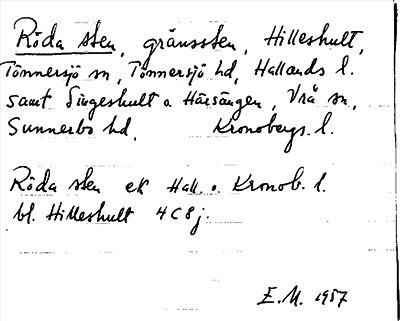 Röda sten, gränssten, Hilleshult,
Tönnersjö sn, Tönnersjö hd, Hallands l.
samt Singeshult o. Härsängen, Vrå sn,
Sunnerbo hd, Kronobergs l.
Röda sten ek Hall. o. Kronob. l.
bl. Hilleshult 4C8j.
E.M. 1957